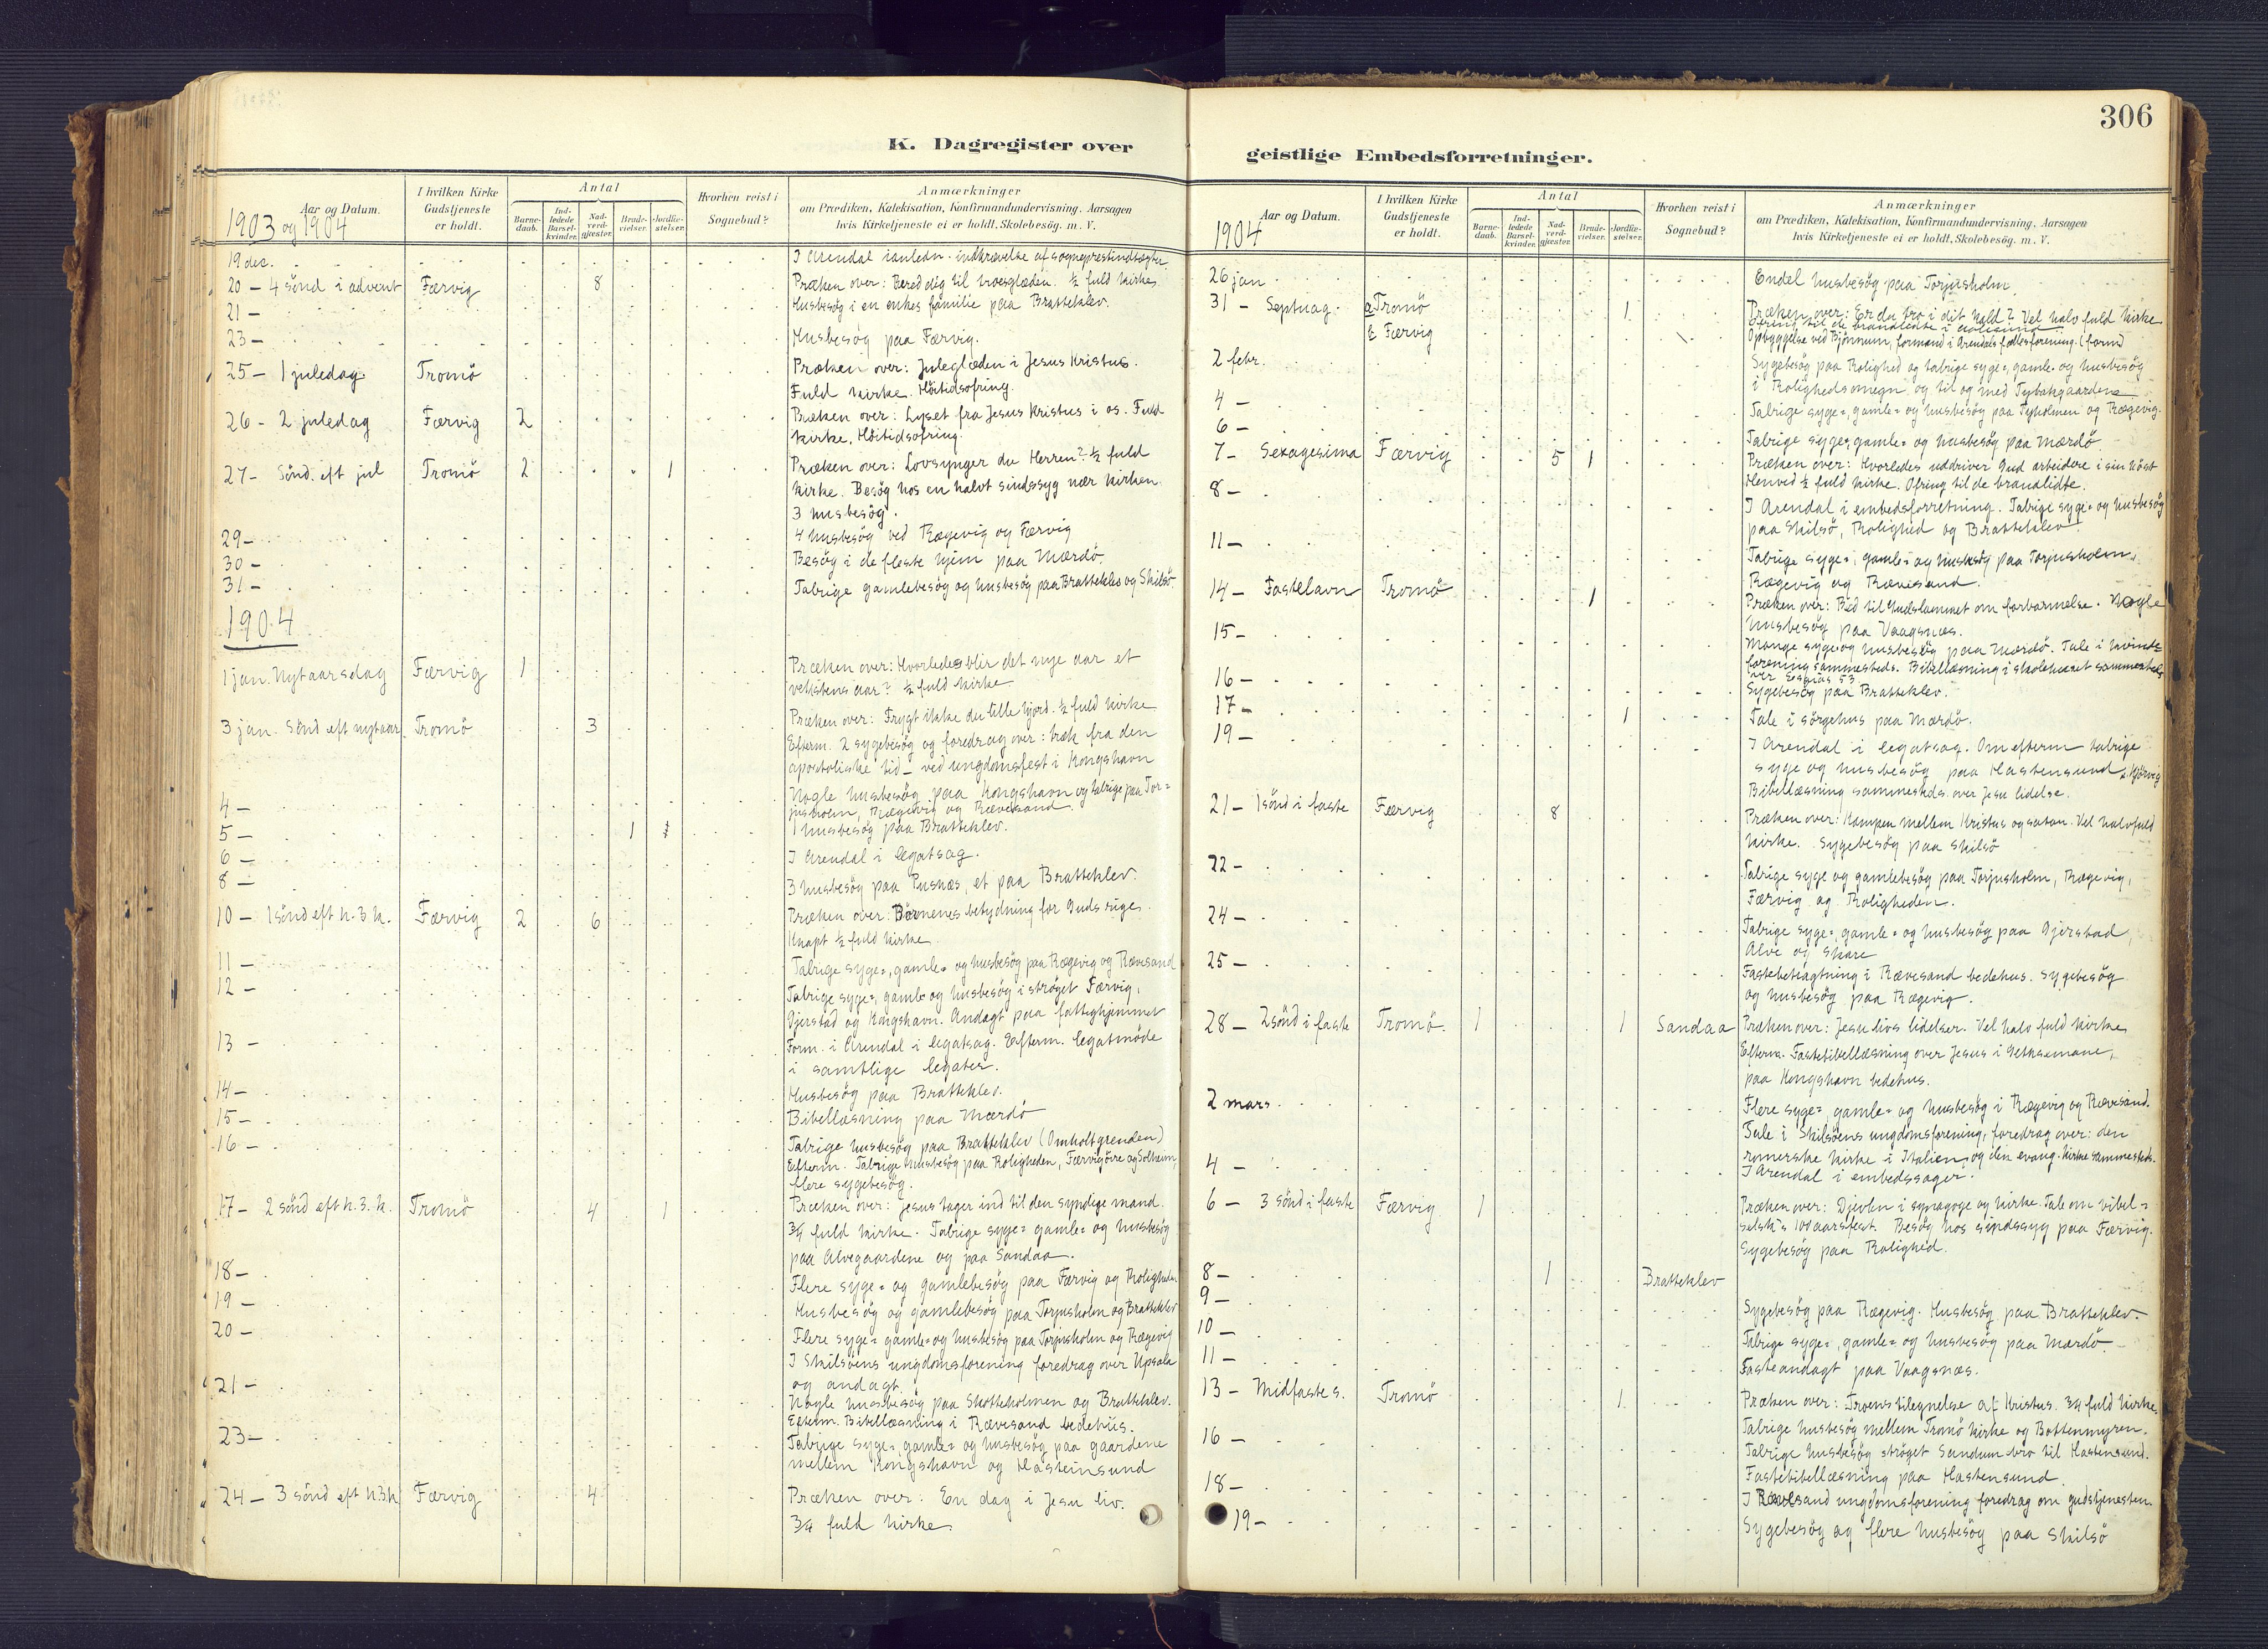 K. Dagregister over
Aar og Datum.
1903 og 1904
I hvilken Kirke Gudstjeneste er holdt.
Antal
Barne-daab.
Ind-ledede Barsel-kvinder.
Nad-verd-gjæster.
Brude-vielser.
Jordfæ-stelser.
Hvorhen reist i Sognebud?
Anmærkninger
om Prædiken, Katekisation, Konfirmandundervisning. Aarsagen
hvis Kirketjeneste ei er holdt, Skolebesøg. m. V.
19 dec. I Arendal i anledn. indkrævelse af sogneprestindtægter
20 – 4 sönd i advent Færvig 8 Præken over: Bered dig til troesglæden. ½ fuld kirke.
21 – Husbesög i en enkes familie paa Bratteklev.
23 – Husbesög paa Færvig.
25 – 1 juledag Tromö Præken over: Juleglæden i Jesus Kristus.
Fuld kirke. Höitidsofring.
26 – 2 juledag Færvig 2 Præken over: Lyset fra Jesus Kristus i os. Fuld
kirke. Höitidsofring.
27 – Sönd. eft jul Tromö 2 1 Præken over: Lovsynger du Herren? ½ fuld
kirke. Besög hos en halvt sindssyg nær kirken.
3 husbesög.
29 – 4 husbesög ved Rægevig og Færvig
30 – Besög i de fleste hjem paa Mærdö.
31 – Talrige gamlebesög og husbesög paa Bratteklev og Skilsö.
1904
1 jan. Nytaarsdag Færvig 1 Præken over: Hvorledes blir det nye aar et
vekstens aar? ½ fuld kirke
3 jan. Sönd eft nytaar Tromö 3 Præken over: Frygt ikke du lille hjord. ½ fuld kirke
Efterm. 2 sygebesög og foredrag over: træk fra den
apostoliske tid – ved ungdomsfest i Kongshavn
4 – Nogle husbesög paa Kongshavn og talrige paa Tor=
jusholm, Rægevig og Rævesand.
5 – 1 1 1 husbesög paa Bratteklev.
6 – I Arendal i legatsag.
8 – 3 husbesög paa Pusnæs, et paa Bratteklev.
10 – 1 sönd eft h. 3 k. Færvig 2 6 Præken over: Börnenes betydning for Guds rige.
Knapt ½ fuld kirke.
11 – Talrige syge=, gamle= og husbesög paa Rægevig og Rævesand
12 – Talrige syge=, gamle og husbesög i ströget Færvig,
Gjerstad og Kongshavn. Andagt paa fattighjemmet
13 – Form. i Arendal i legatsag. Efterm. legatmöde
i samtlige legater.
14 – Husbesög paa Bratteklev.
15 – Bibellæsning paa Mærdö
16 – Talrige husbesög paa Bratteklev (Omholtgrenden)
Efterm. Talrige husbesög paa Roligheden, Færvigöire og Solheim,
flere sygebesög.
17 – 2 sönd eft h. 3. k. Tromö 4 1 Præken over: Jesus tager ind til den syndige mand.
¾ fuld kirke. Talrige syge= gamle= og husbesög
paa Alvegaardene og paa Sandaa.
18 – Flere syge= og gamlebesög paa Færvig og Roligheden
19 – Husbesög og gamlebesög paa Torjusholm og Bratteklev
20 – Flere syge= gamle= og husbesög paa Torjusholm og Rægevig
I Skilsöens ungdomsforening foredrag over Upsala
og andagt.
21 – Nogle husbesög paa Skotteholmen og Bratteklev.
Efterm. Bibellæsning i Rævesand bedehus.
23 – Talrige syge=, gamle= og husbesög paa gaardene
mellem Kongshavn og Hasteinsund
24 – 3 sönd eft h 3 k Færvig 4 Præken over: En dag i Jesu liv.
¾ fuld kirke.
306
geistlige Embedsforretninger.
Aar og Datum.
1904
I hvilken Kirke Gudstjeneste er holdt.
Antal
Barne-daab.
Ind-ledede Barsel-kvinder.
Nad-verd-gjæster.
Brude-vielser.
Jordfæ-stelser.
Hvorhen reist i Sognebud?
Anmærkninger
om Prædiken, Katekisation, Konfirmandundervisning. Aarsagen
hvis Kirketjeneste ei er holdt, Skolebesøg. m. V.
26 jan. Endel husbesög paa Torjusholm.
31 – Septuag. a Tromö 1 Præken over: Er du tro i dit kald? Vel halv fuld kirke
Ofring til de brandlidte i Aalesund
b Færvig Opbyggelse ved Bjönnum, formand i Arendals fællesforening. (form)
2 febr. Sygebesög paa Rolighed og talrige syge=, gamle= og husbesög
i Rolighedsomegn og til og med Tybakgaardene
4 – Talrige syge=, gamle= og husbesög paa Tyholmen og Rægevig.
6 – Talrige syge=, gamle= og husbesög paa Mærdö
7 – Sexagesima Færvig 5 1 Præken over: Hvorledes uddriver Gud arbeidere i sin höst
Henved ½ fuld kirke. Ofring til de brandlidte.
8 – I Arendal i embedsforretning. Talrige syge= og husbesög
paa Skilsö, Rolighed og Bratteklev
11 – Talrige syge=, gamle= og husbesög paa Torjusholm,
Rægevig og Rævesand.
14 – Fastelavn Tromö 1 Præken over: Bed til Gudslammet om forbarmelse. Nogle
husbesög paa Vaagsnæs.
15 – Mange syge og husbesög paa Mærdö. Tale i kvinde=
forening sammesteds. Bibellæsning i skolehuset sammesteds
over Esaias 53
16 – Sygebesög paa Bratteklev.
17 – 1 Tale i sörgehus paa Mærdö.
19 – I Arendal i legatsag. Om efterm talrige
syge og husbesög paa Hastensund
Bibellæsning sammesteds over Jesu lidelse.
21 – 1 sönd i faste Færvig 8 Præken over: Kampen mellem Kristus og satan. Vel halvfuld
kirke. Sygebesög paa Skilsö
22 – Talrige syge og gamlebesög paa Torjusholm, Rægevig,
Færvig og Roligheden.
24 – Talrige syge=, gamle= og husbesög paa Gjerstad,
Alve og Skare
25 – Fastebetragtning i Rævesand bedehus. Sygebesög
og husbesög paa Rægevig.
28 – 2 sönd i faste Tromö. 1 1 Sandaa Præken over: Jesu livs lidelser. Vel halv fuld kirke
Efterm. Fastebibellæsning over Jesus i Gethsemane,
paa Kongshavn bedehus.
2 mars. Flere syge=, gamle= og husbesög i Rægevig og Rævesand.
Tale i Skilsöens ungdomsforening, foredrag over: den
romerske kirke i Italien, og den evang. kirke sammesteds.
4 – I Arendal i embedssager.
6 – 3 sönd i faste Færvig 1 Præken over: Djevlen i synagoge og kirke. Tale om bibel=
selsk's 100aarsfest. Besög hos sindssyg paa Færvig.
Sygebesög paa Rolighed.
8 – 1 Bratteklev
9 – Sygebesög paa Rægevig. Husbesög paa Bratteklev.
10 – Talrige syge=, gamle= og husbesög paa Mærdö.
11 – Fasteandagt paa Vaagsnæs.
13 – Midfaste s. Tromö 1 Præken over: Troens tilegnelse af Kristus. ¾ fuld kirke.
Talrige husbesög mellem Tromö kirke og Bottenmyren.
16 – Talrige husbesög ströget Sandum bro til Hastensund.
Fastebibellæsning paa Hastensund
18 – I Rævesand ungdomsforening foredrag om gudstjenesten.
19 – Sygebesög og flere husbesög paa Skilsö